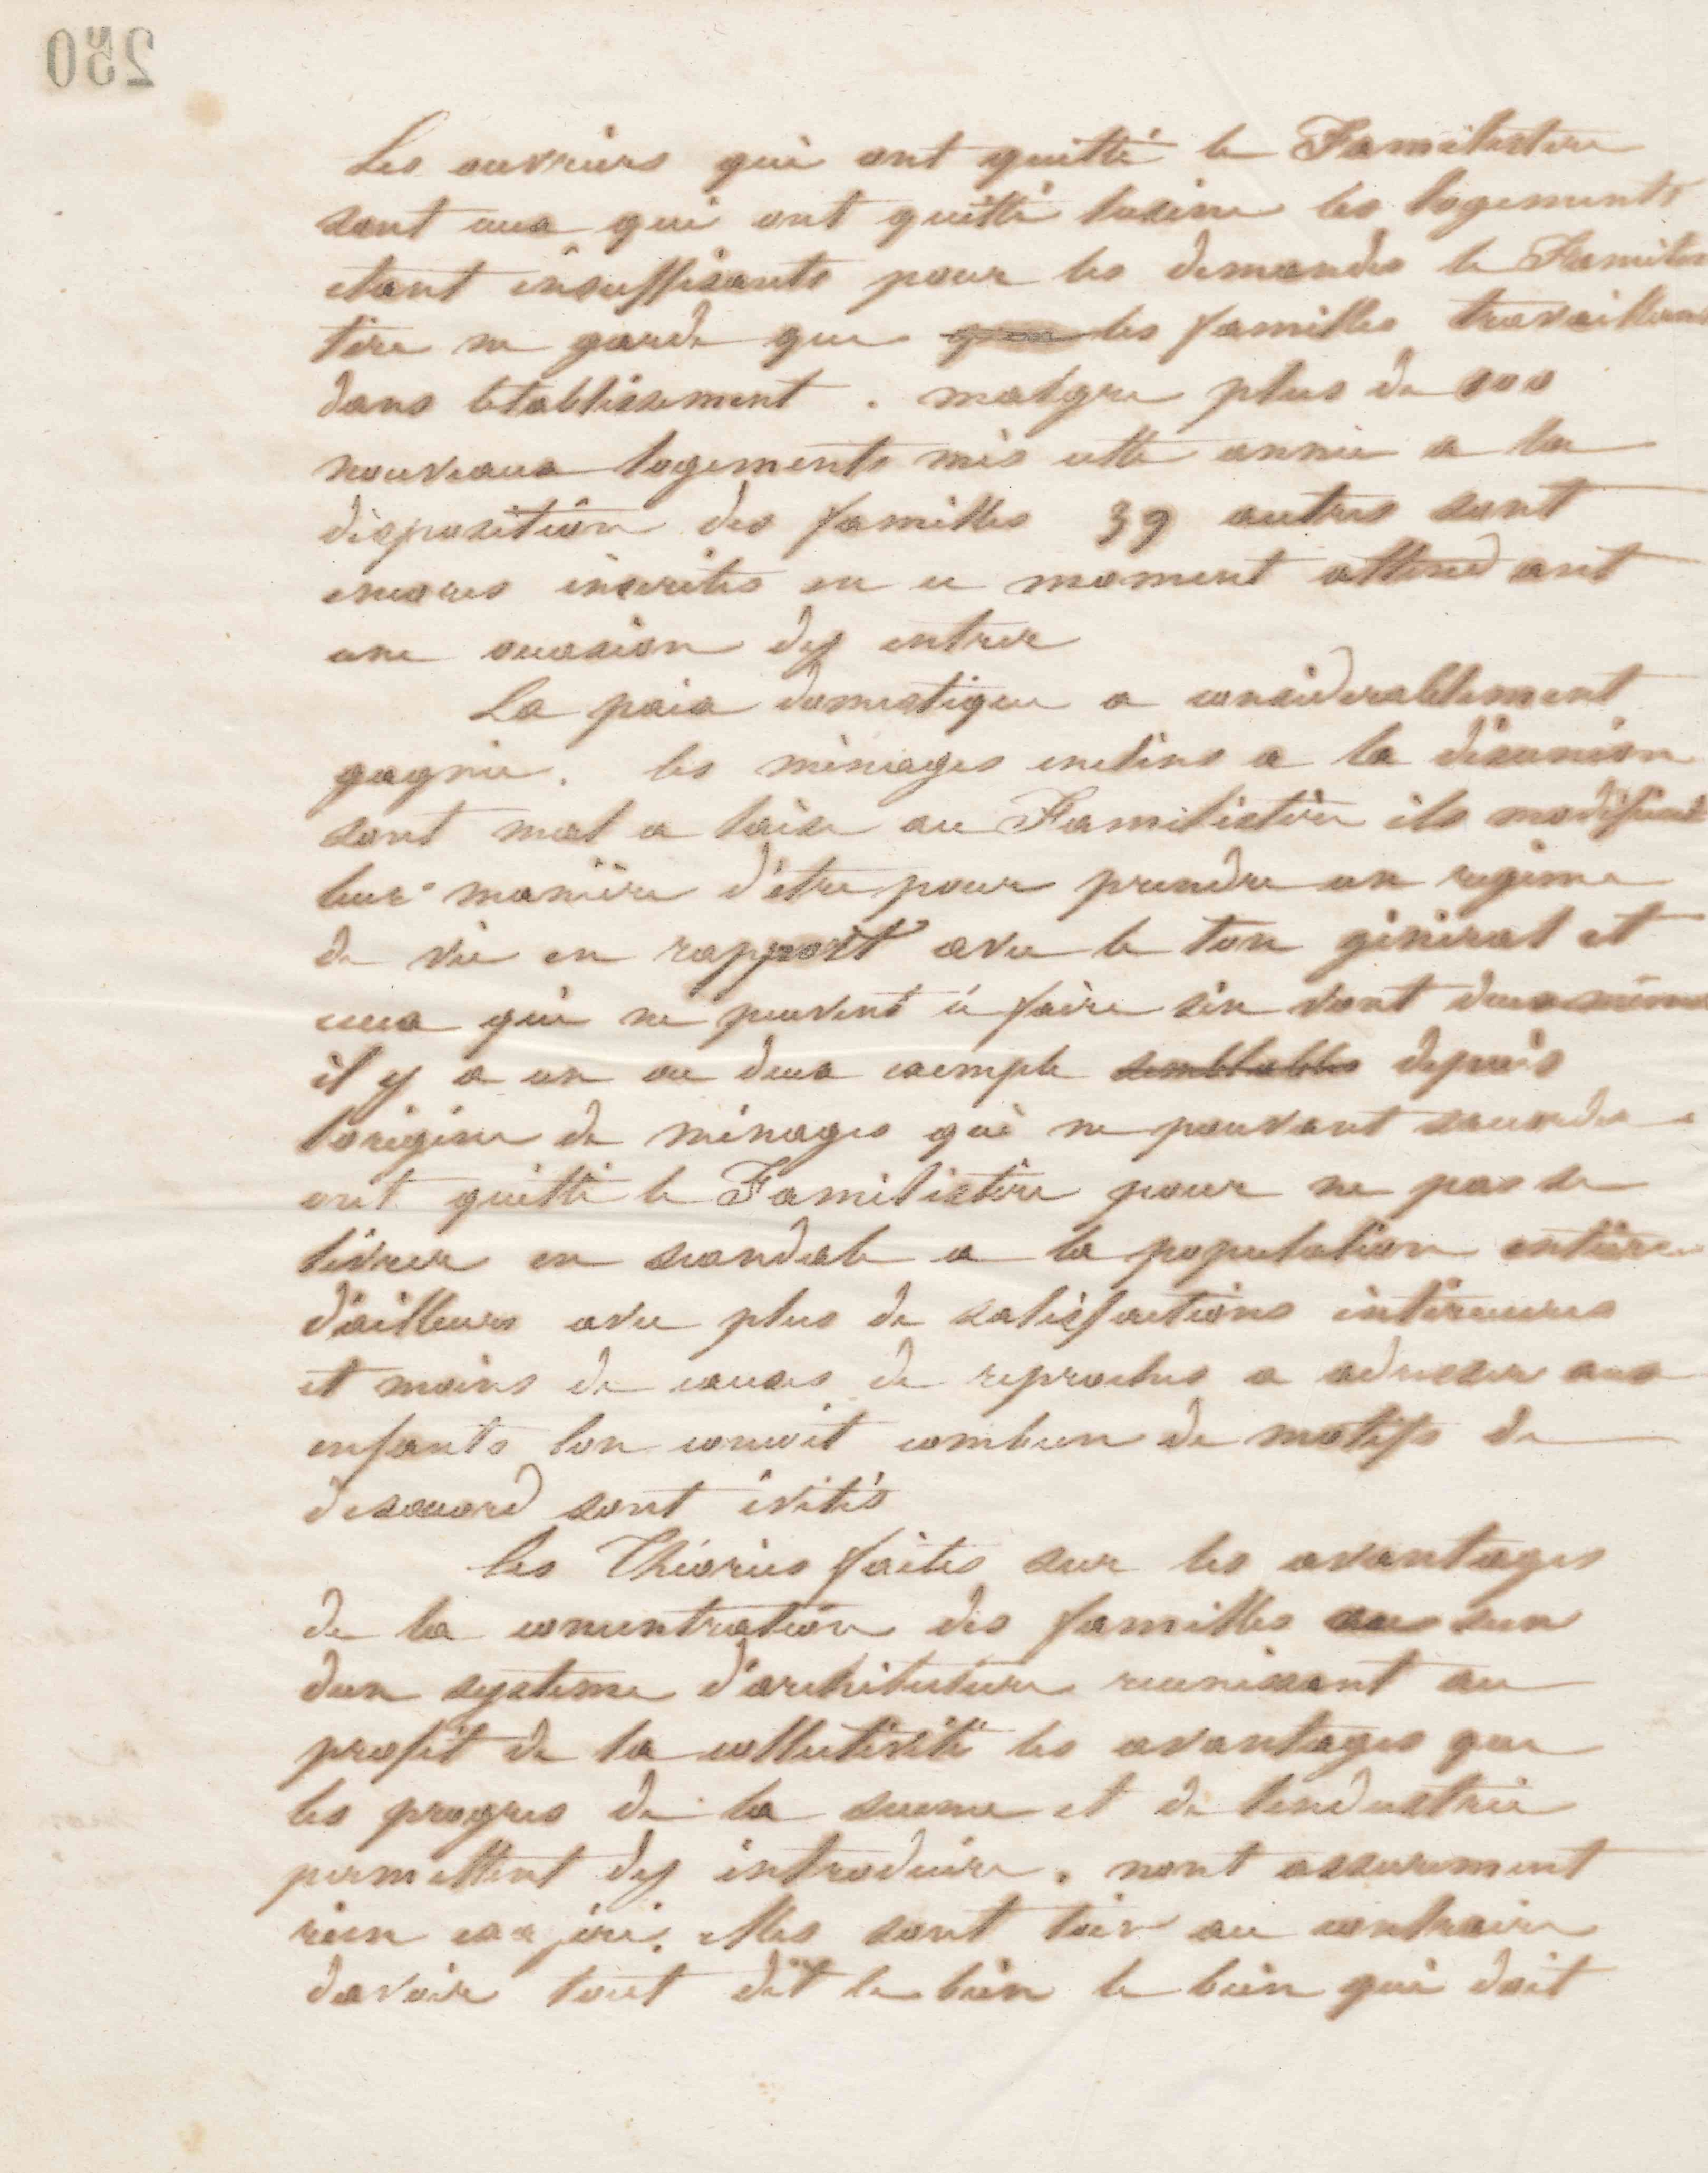 250
Les ouvriers qui ont quitté le Familistere
sont ceux qui ont quitté lusine les logements
etant insuffisants pour les demandes le Familis
tère ne garde que que les familles travaillant
dans letablissement . malgre plus de 100
nouveaux logements mis cette année a la
disposition des familles 39 autres sont
encores inscrites en ce moment attendant
une occasion dy entrer
La paix domestique a considerablement
gagnée. les ménages enclins a la désunion
sont mal a laise au Familistère ils modifient
leur manière d'être pour prendre un regime
de vie en rapport avec le ton général et
ceux qui ne peuvent le faire sen vont deux même
il y a un ou deux exemple semblables depuis
lorigine de ménages qui ne pouvant saccorder
ont quitté le Familistère pour ne pas se
livrer en scandale a la population entière
d'ailleurs avec plus de satisfactions intérieures
et moins de causes de reproches a adresser aux
enfants lon concoit combien de motifs de
desaccord sont évités
les Théories faites sur les avantages
de la concentration des familles au sein
dun systeme d'architecture reunissant au
profit de la collectivité les avantages que
les progres de la science et de lindustrie
permettent dy introduire. nont assurement
rien exagéré. elles sont loin au contraire
davoir tout dit le bien le bien qui doit